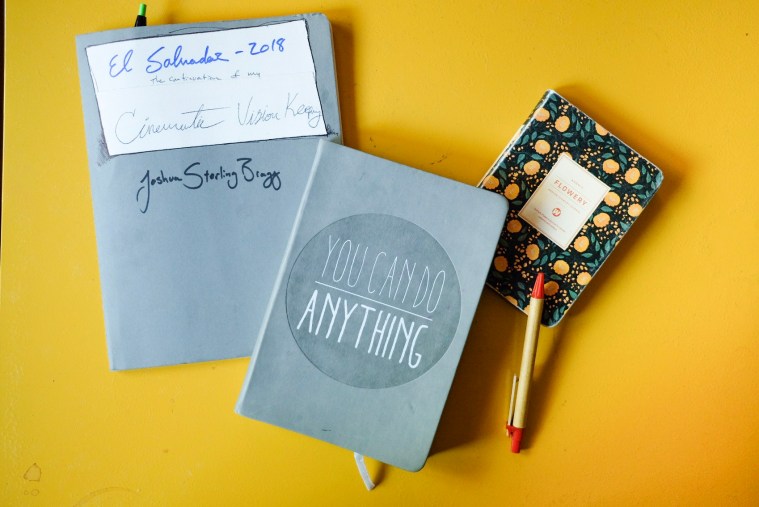 El Salvador - 2018
the continuation of my
Cinematic Vision Keeping
Joshua Sterling Bragg
YOU CAN DO
ANYTHING
FLOWERY